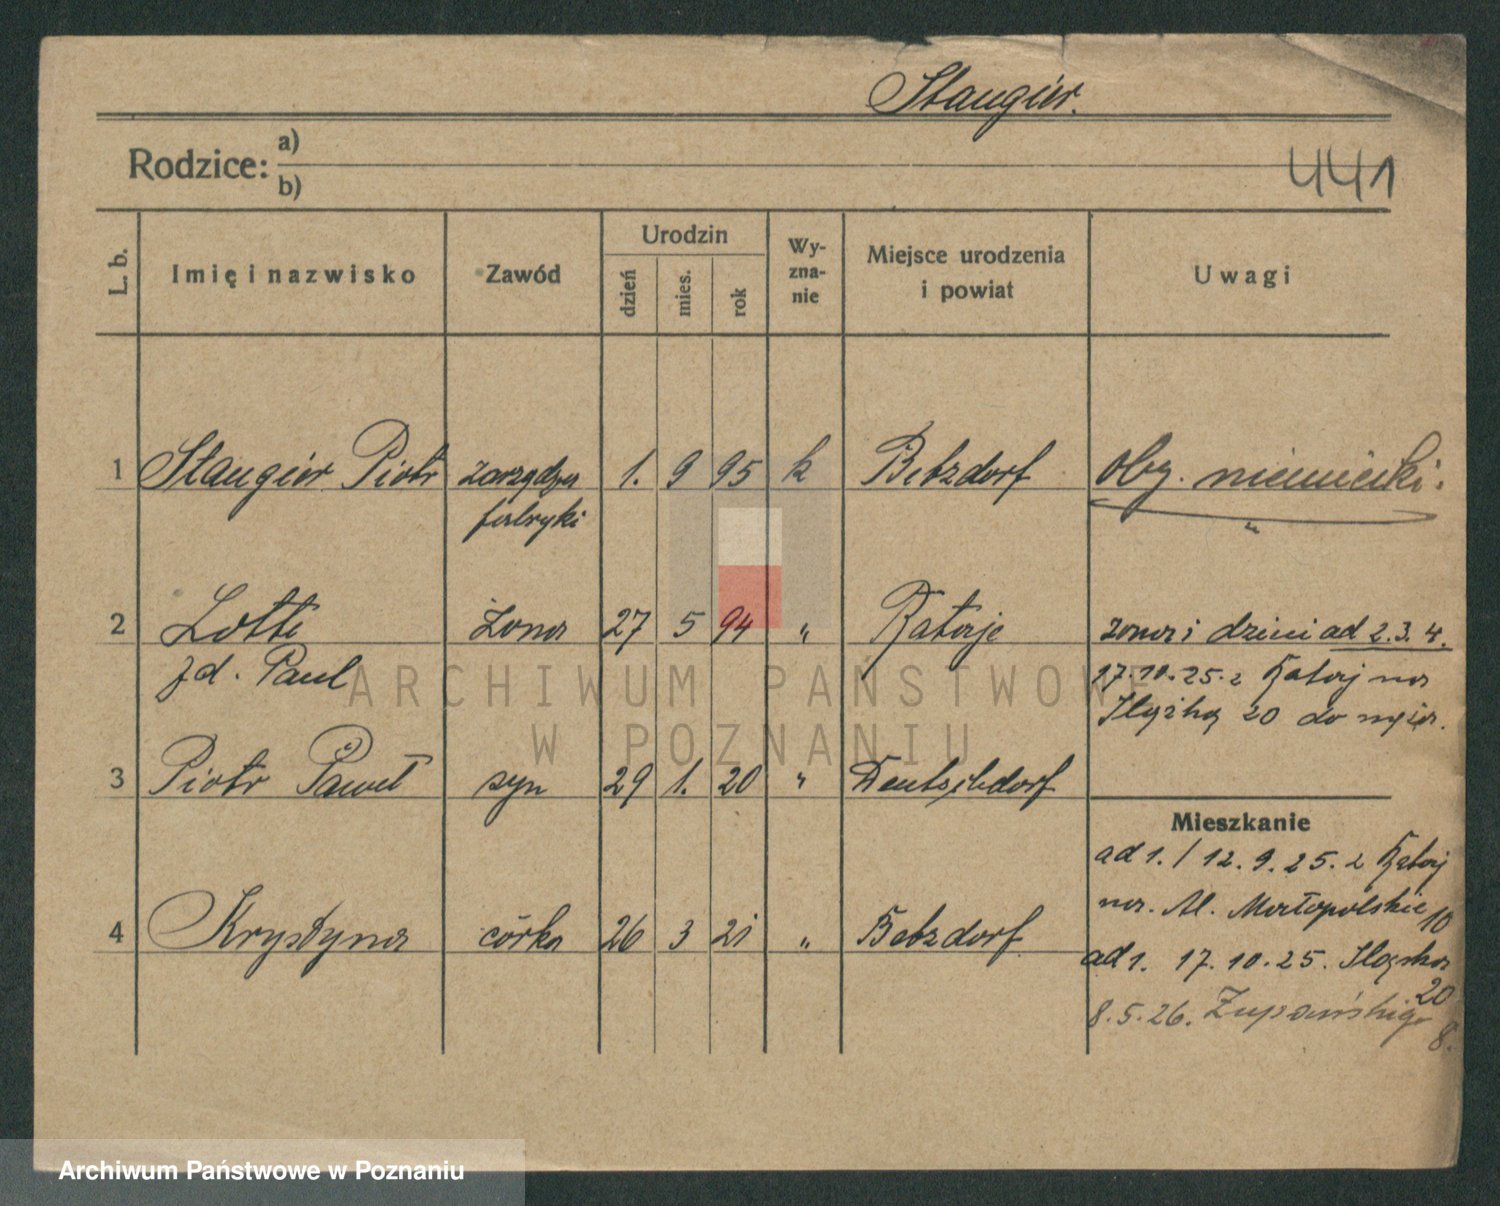 Staugier.
Rodzice: a)
b)
441
L. b.
Imię i nazwisko
Zawód
Urodzin
dzień
mies.
rok
Wy-
zna-
nie
Miejsce urodzenia
i powiat
Uwagi
1 Staugier Piotr zarządza 1. 9 95 k Betzdorf oby. niemiecki.
fabryki "
2 Lotte żona 27 5 94 " Rataje żona i dzieci ad 2.3.4.
zd. Paul 17.10.25. z Rataj na
Iłżską 20 do męża.
3 Piotr Paweł syn 29 1. 20 " Deutschdorf
Mieszkanie
ad 1. / 12.9.25. z Rataj
na. Al. Małopolskie
10
4 Krystyna córka 26 3 21 " Betzdorf
ad 1. 17.10.25.
20
8.5.26. Żupańskiego
8.
ARCHIWUM PAŃSTWOWE
W POZNANIU
Archiwum Państwowe w Poznaniu